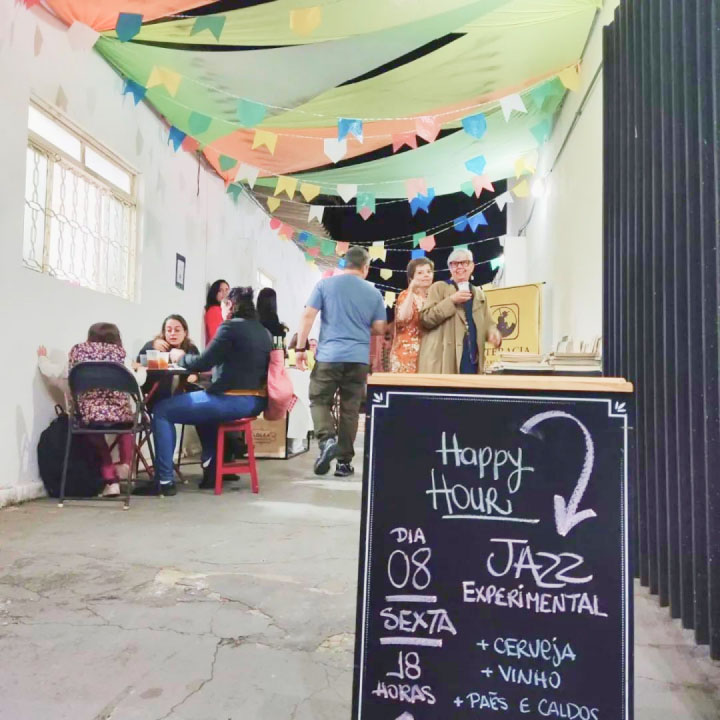 TERACIA
Happy
HOUR
DIA
08
SEXTA
18
HORAS
JAZZ
EXPERIMENTAL
+ CERVEJA
+ VINHO
+ PAËS E CALDOS